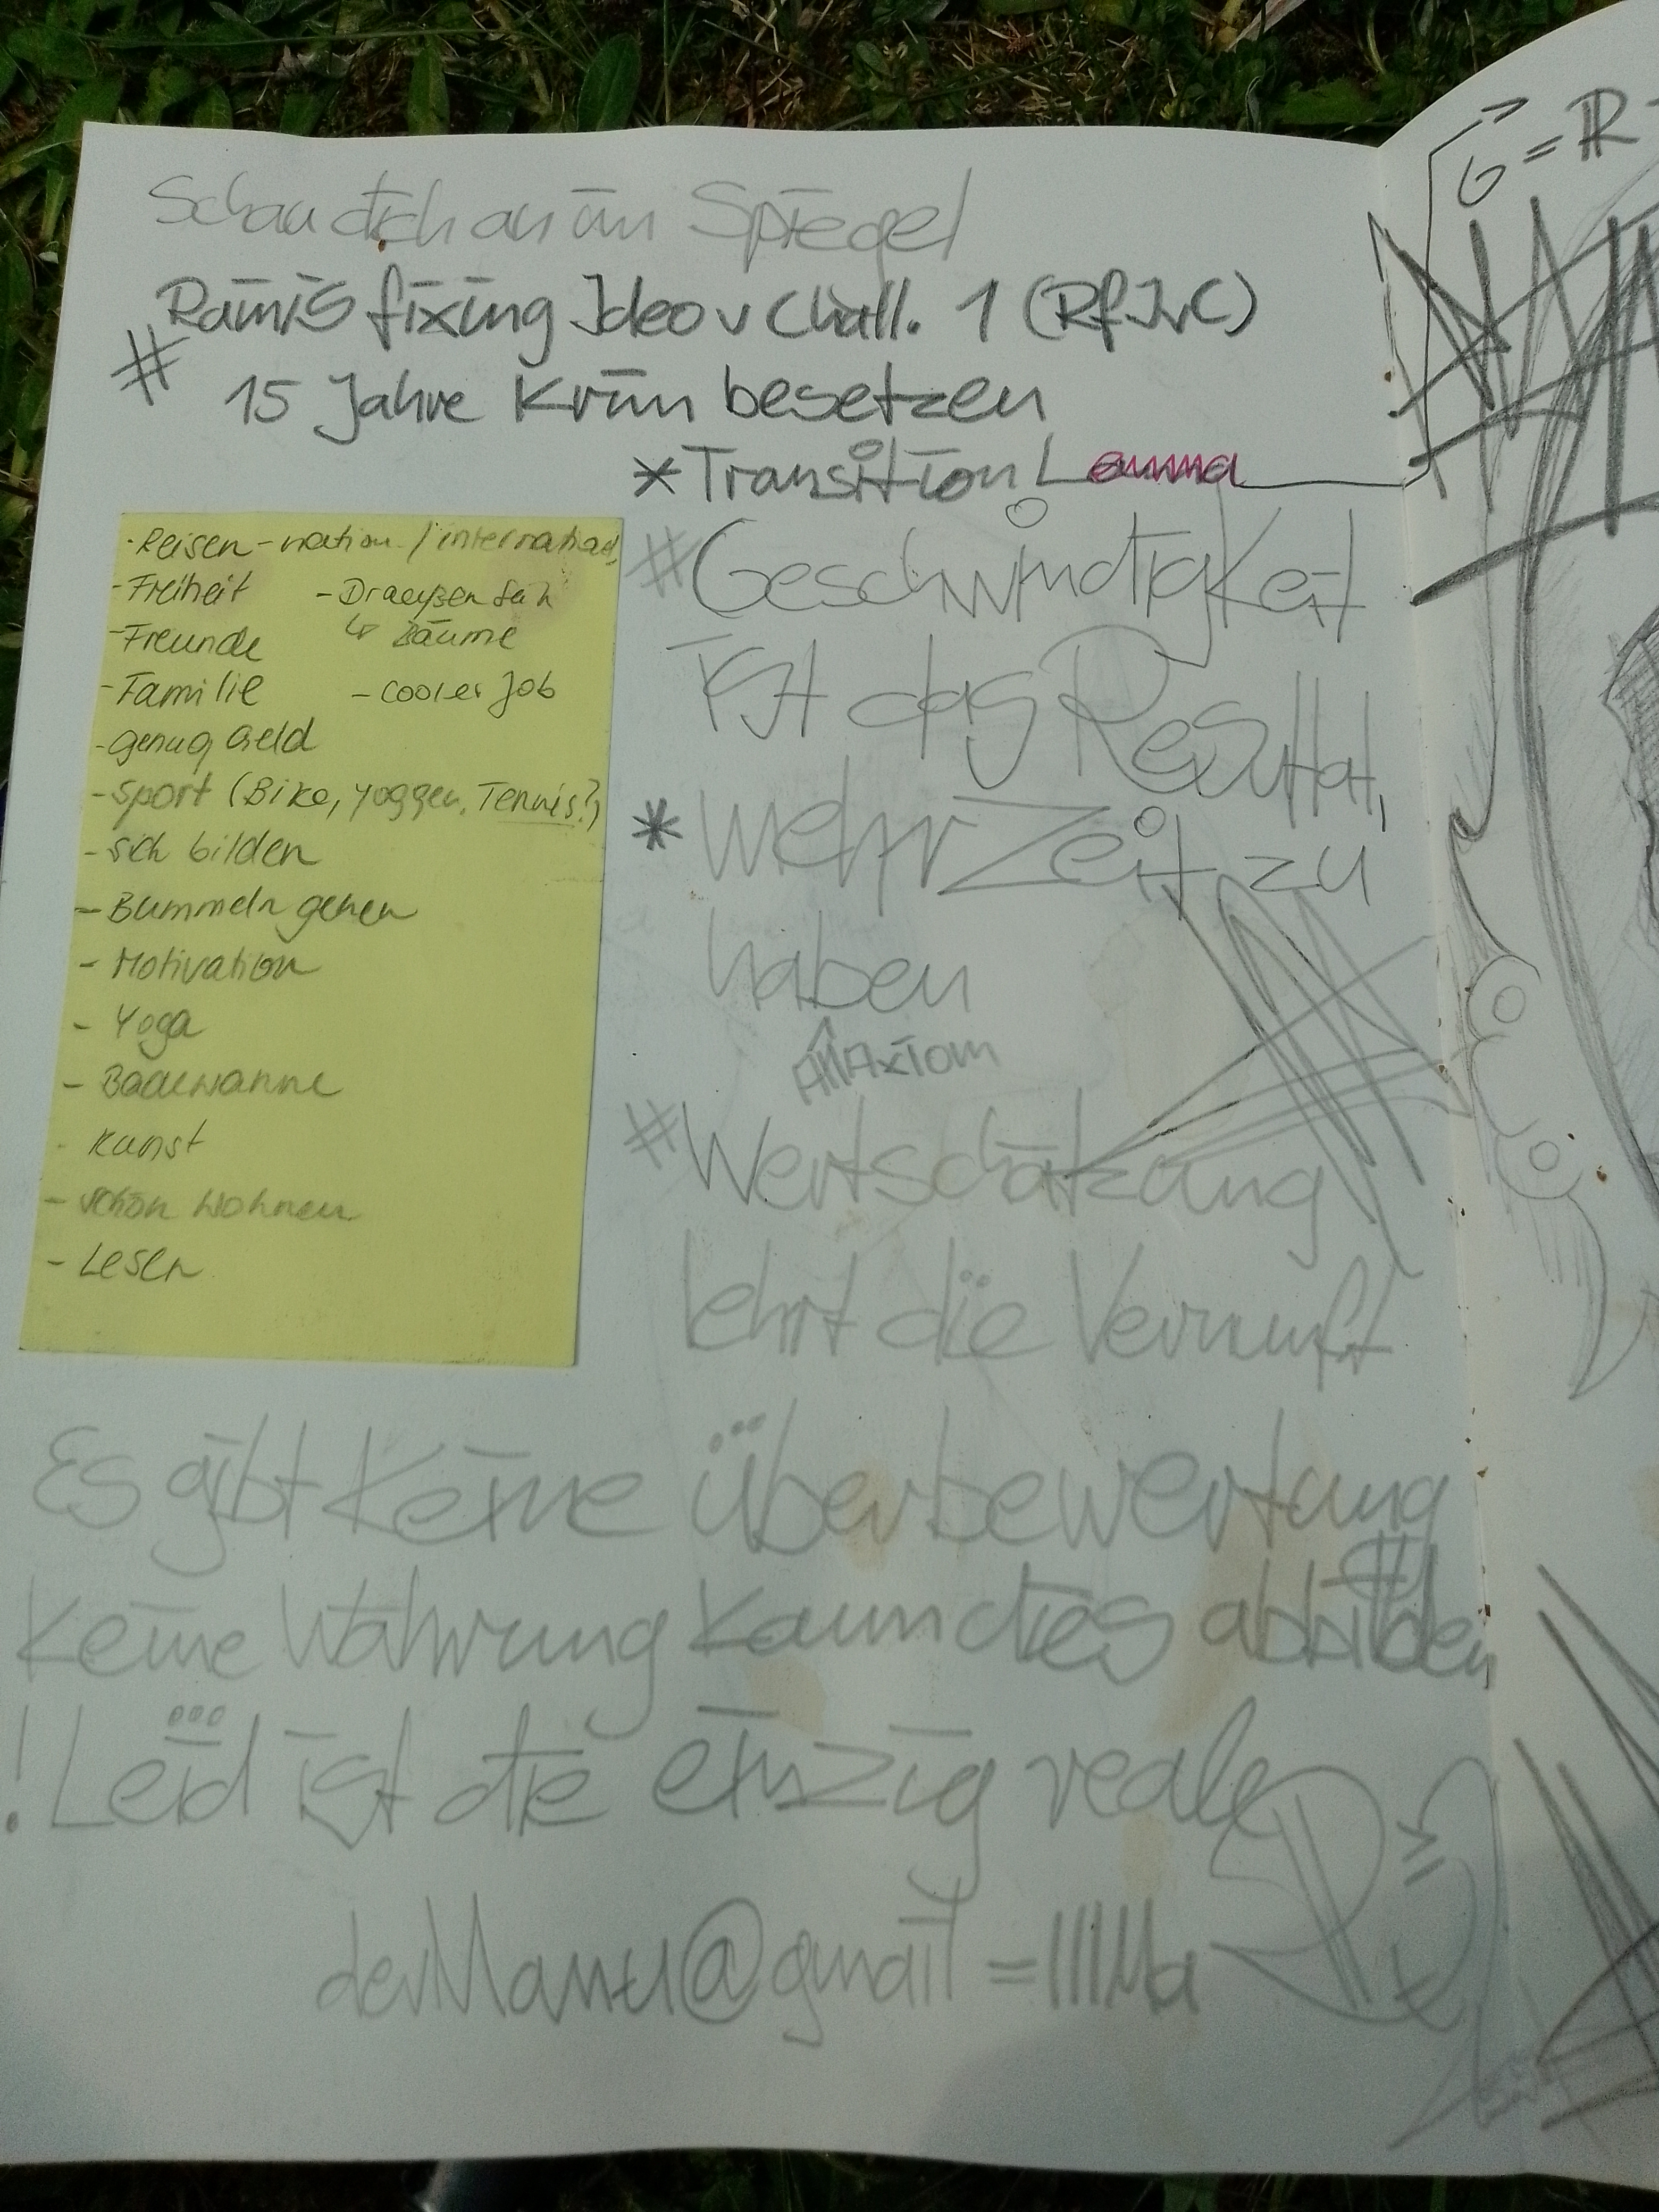 Schau dich an im Spiegel
Ramis fixing Ideo v Chall. 1 (RfIvC)
# 15 Jahre Krim besetzen
* Transition Lemma
- Reisen - nation. / internation
- Freiheit - Draußen sein
- Freunde ↳ Bäume
- Familie - cooler Job
- genug Geld
- Sport (Bike, yoggen, Tennis?)
- sich bilden
- Bummeln gehen
- Motivation
- Yoga
- Badewanne
- Kunst
- schön wohnen
- Lesen
# Geschwindigkeit
ist das Resultat,
* mehr Zeit zu
haben
Axiom
# Wertschätzung
lehrt die Vernunft
Es gibt keine überbewertung
Keine Währung kann dies abbilden
! Leid ist die einzig reale
derManu@gmail =
= R